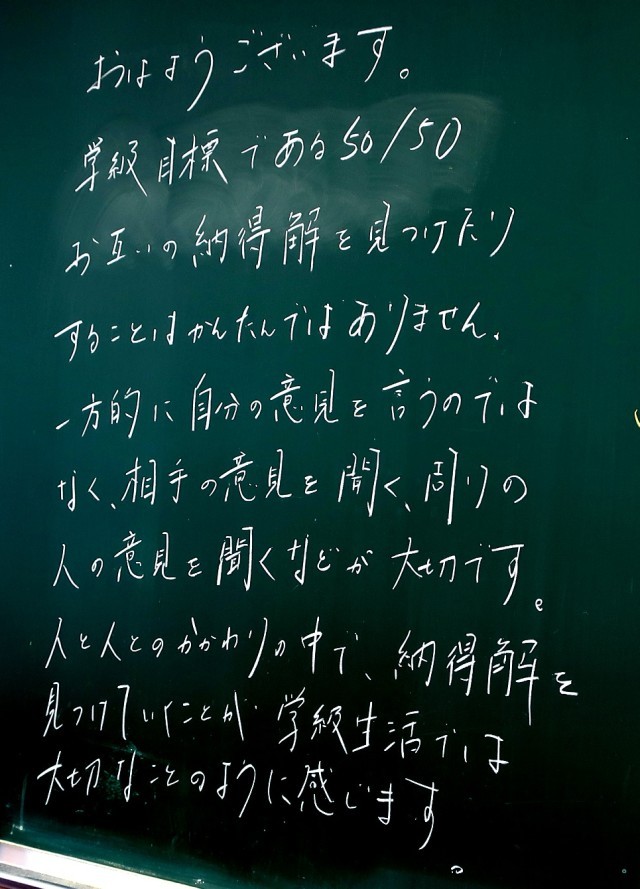 おはようございます。
学級目標である50/50
お互いの納得解を見つけたり
することはかんたんではありません。
一方的に自分の意見を言うのでは
なく、相手の意見を聞く、周りの
人の意見を聞くなどが大切です。
人と人とのかかわりの中で、納得解を
見つけていくことが学級生活では
大切なことのように感じます。